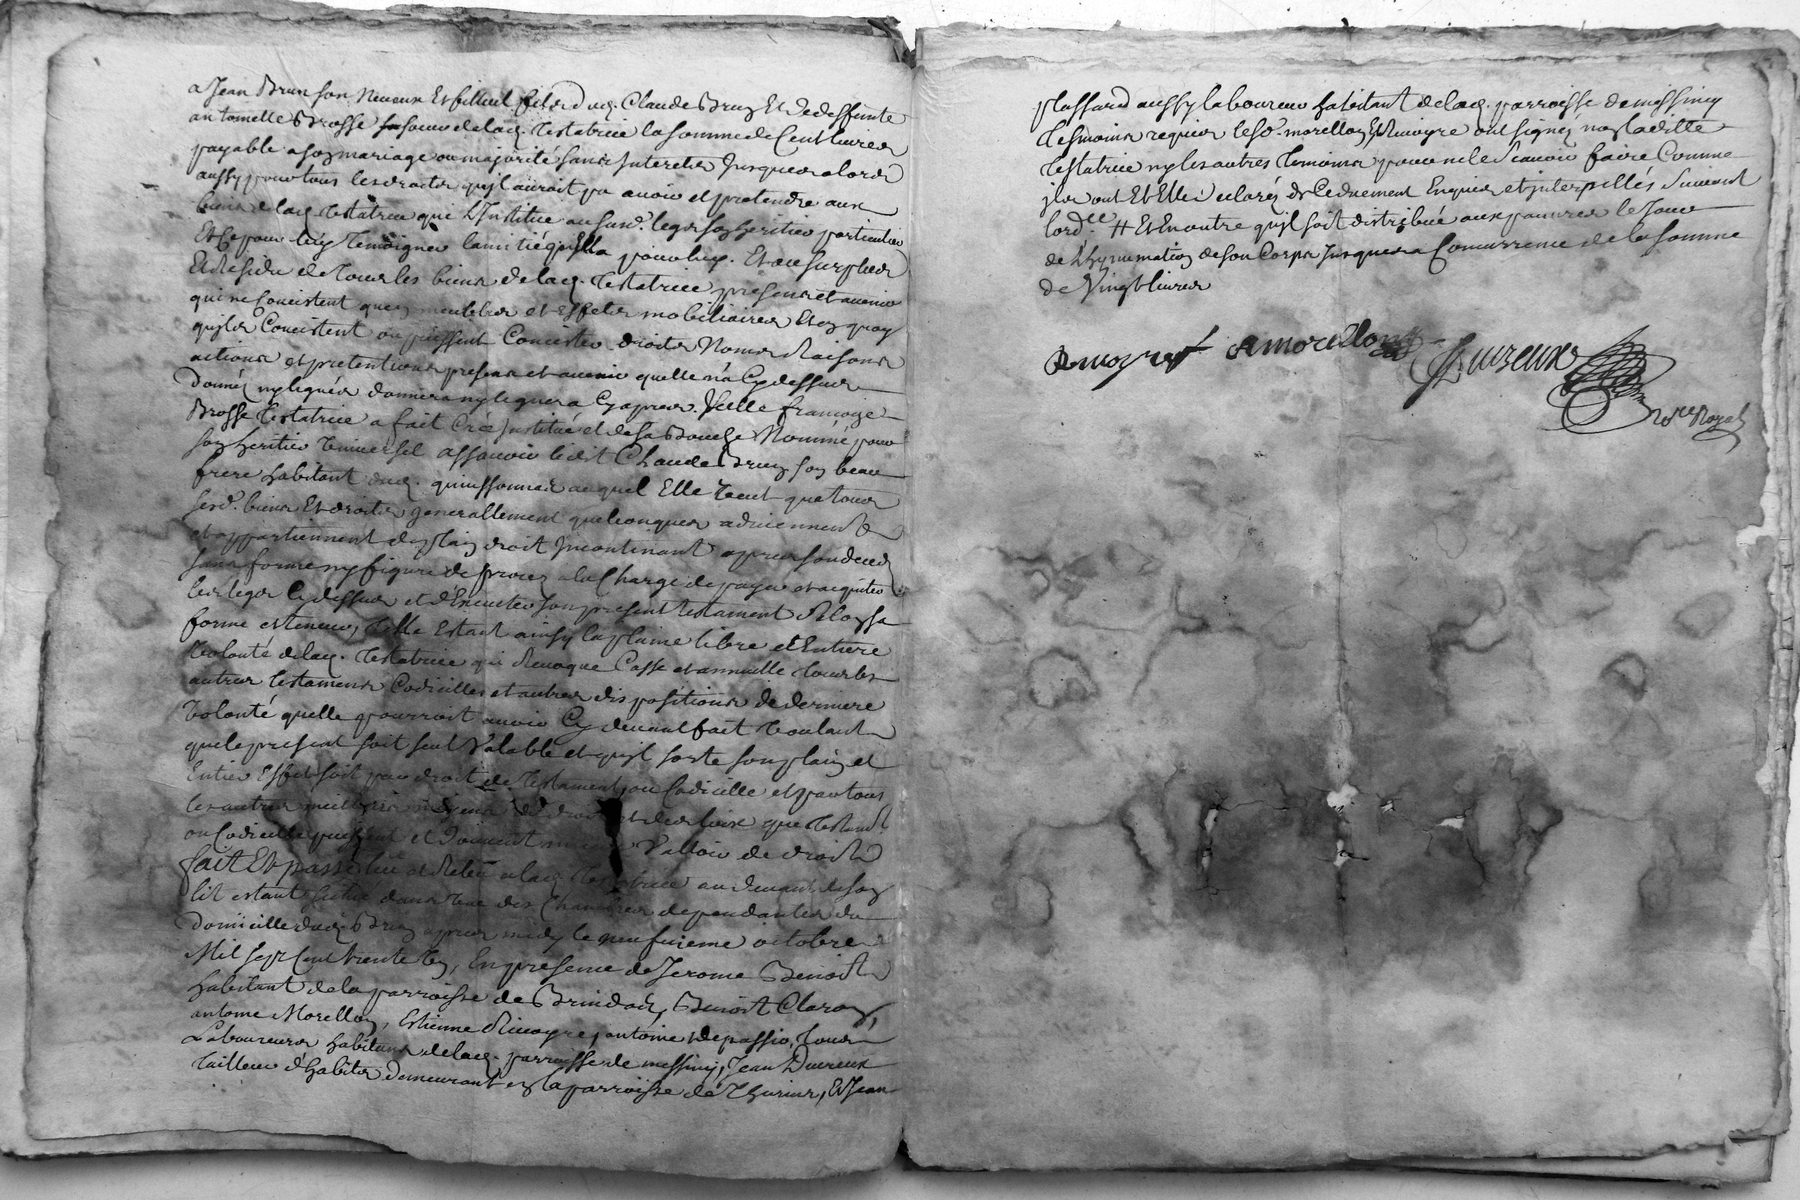 a Jean Brun son Neveux Et filleul fils dud. Claude Brun Et de deffunte
antoinette Brosse sa soeur de lad. Testatrice la somme de Cent livres
payable a son mariage ou majorité sans Interets Jusques alors
aussy pour tous les droits qu'il auroit pu avoir et pretendre aux
biens de lad. Testatrice qui L'Institue au susd. legs son heritier particulier
Et Ce pour luy Temoigner lamitié qu'Ella pour luy. Et au surplus
Et Residu de Tous les biens de lad. Testatrice presens et avenir
qui ne Concistent qu'en meubles et Effets mobiliaires Et en quoy
qu'ils Concistent ou puissent Concister droits Noms Raisons
actions et pretentions presens et avenir quelle n'a Cy dessus
donnéz ny leguéz donnera ny leguera Cy apres. Jcelle francoise
Brosse Testatrice a fait Créé Institué et de sa Bouche Nommé pour
son heritier Universel assavoir ledit Claude Brun son beau
frere habitant dud. quinssonnas auquel Elle Veut que tous
sesd. biens Et droits generallement quelconques adviennent
et appartiennent de plain droit Jncontinant apres son decez
sans forme ny figure de procez a la Charge de payer et acquiter
les legs Cy dessus et d'Executer son present testament Selon sa
forme et teneur, Telle Estant ainsy la plaine libre et Entiere
Volonté de lad. Testatrice qui Revoque Casse et annulle tous les
autres testamens Codicilles et autres dispositions de derniere
Volonté quelle pourroit avoir Cy devant fait Voulant
que le present soit seul Valable et qu'il sorte son plain et
Entier Effet soit par droit de Testament ou Codicille et par tous
les autres meilleurs moyens de droit et des loix que Testamt
ou Codicille puissent et doivent Valloir de droit
fait Et passé leu et Releu a lad. Testatrice au devant de son
lit estant dans Une des Chambres dependantes du
Domicille dud. Brun apres midy le neufuieme octobre
Mil sept Cent trente Un, En presence de Jerome Benoist
habitant de la parroisse de Brindas, Benoist Claron,
antoine Morellon, Estienne Rivoyre, antoine depassio, tous
Laboureurs habitans de lad. parroisse de messimy, Jean Duvreux
Tailleur d'habits demeurant en la parroisse de Thurins, Et Jean
plassard aussy laboureur habitant de lad. parroisse de messimy
Tesmoins requis les Srs. morellon Et Rivoyre ont signéz non ladite
Testatrice ny les autres Temoins pour ne le Scavoir faire Comme
jls ont Et Elle declaréz de Ce duement Enquis et jnterpellés Suivant
lord.ce # Et En outre qu'il soit distribué aux pauvres le Jour
de L'hynumation de son Corps Jusques a Concurrence de la somme
de Vingt livres
Rivoyre A Morellon
Nore Royal